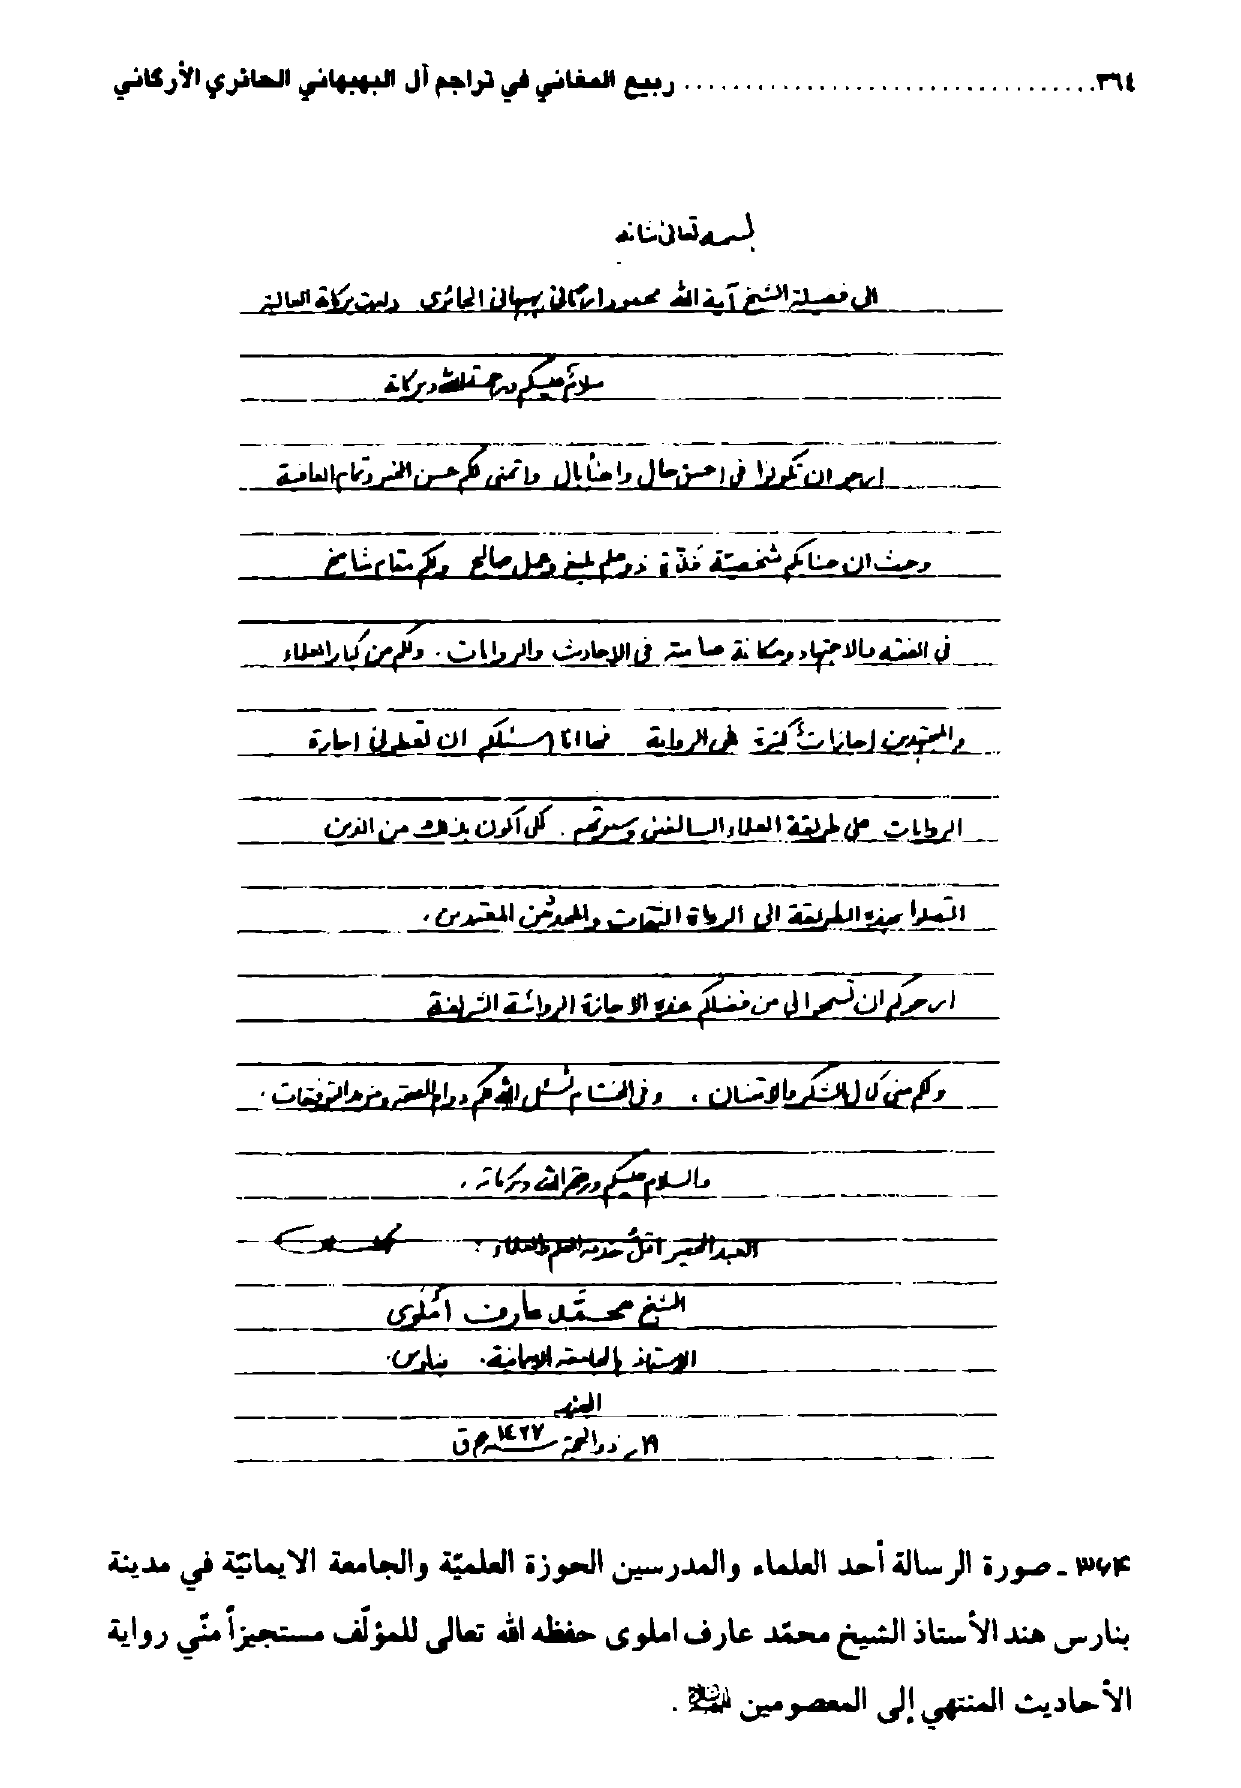 ٣٦٤ ................................ ربيع المغاني في تراجم آل البهبهاني الحائري الأركاني
بسمه تعالى شانه
الى فضيلة الشيخ آية الله محمود اركاني بهبهاني الحائرى دامت بركاته العالية
سلام عليكم ورحمة الله وبركاته
ارجو ان تكونوا فى احسن حال واهنأ بال واتمنى لكم حسن وتمام العافية
وحيث ان جنابكم شخصيّة فذّة ذو علم بليغ وعمل صالح ولكم مقام شامخ
فى الفقه والاجتهاد ومكانة سامية فى الاحاديث والروايات . ولكم من كبار العلماء
والمجتهدين اجازات كثيرة فى الرواية فها انا اسئلكم ان تعطونى اجازة
الروايات على طريقة العلماء السالفين وسيرتهم . كى أكون بذلك من الذين
اتصلوا بهذه الطريقة الى الرواة الثقات والمحدثين المعتمدين .
ارجوكم ان تسمحوا لى من فضلكم هذه الاجازة الروائية الشريفة
ولكم منى كمال الشكر والامتنان ، وفى الختام نسئل الله لكم دوام الصحة ومزيد التوفيقات .
والسلام عليكم ورحمة الله وبركاته .
العبد الحقير اقلّ خدمة العلم والعلماء :
الشيخ محمّد عارف املوى
الاستاذ بالجامعة الايمانية . بنارس .
الهند
١٩ ذو الحجة سنه ١٤٢٧ ه ق
٣٦٤ ـ صورة الرسالة أحد العلماء والمدرسين الحوزة العلميّة والجامعة الايمانيّة في مدينة
بنارس هند الأستاذ الشيخ محمّد عارف املوى حفظه الله تعالى للمؤلّف مستجيزاً منّي رواية
الأحاديث المنتهي إلى المعصومين .